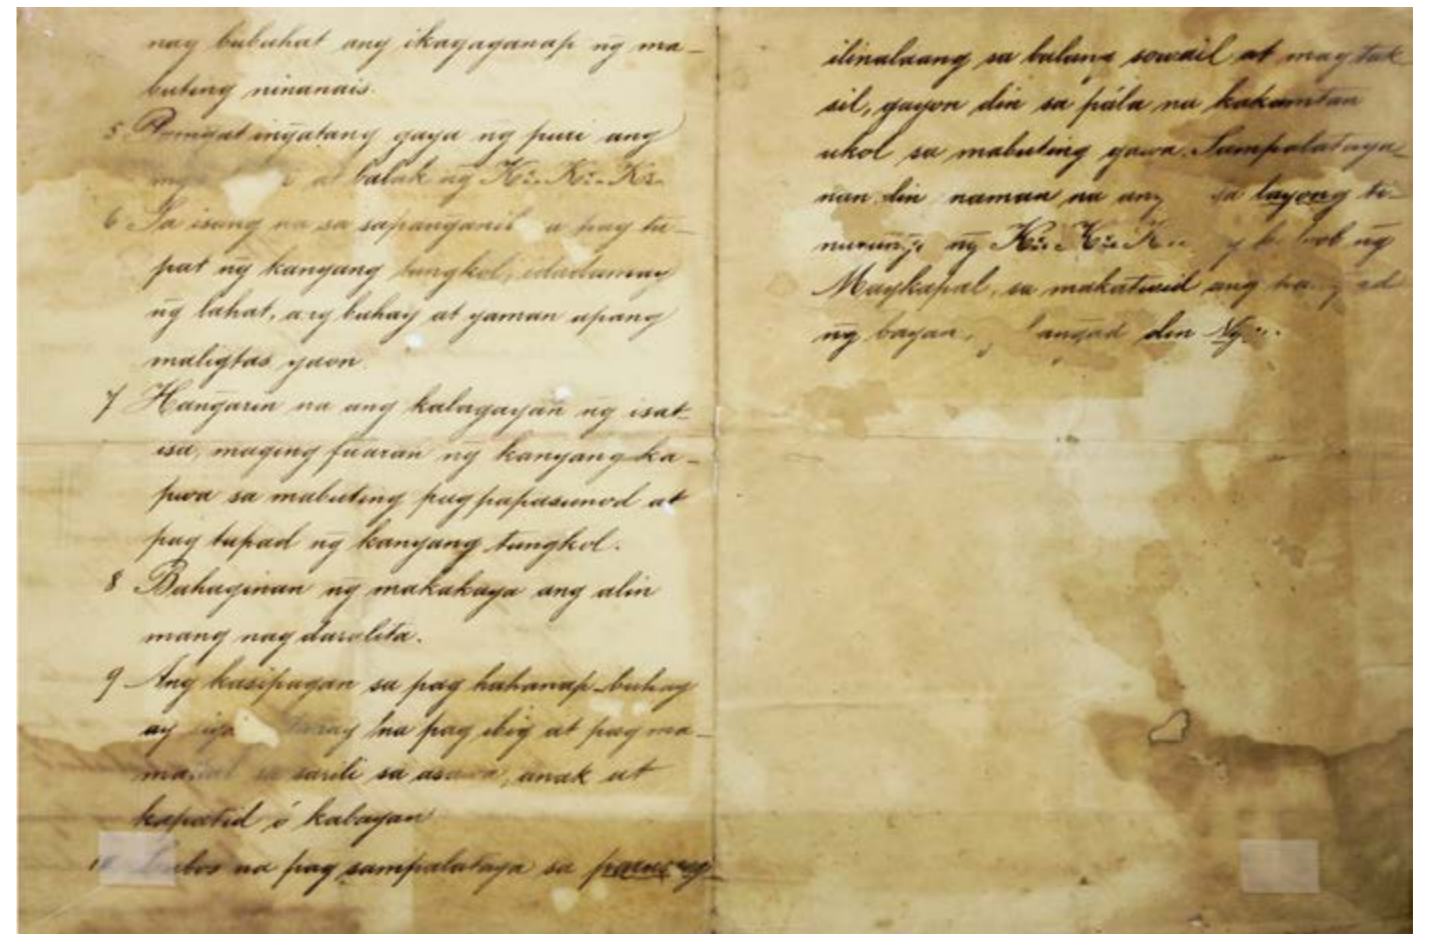 nag bubuhat ang ikagaganap ng̃ ma-
buting ninanais.
5 Pag̃ingat ing̃atang gaya ng̃ puri ang
at balak ng̃ K:. K:. K:.
6 Sa isang na sa sapang̃anib pag tu-
pat ng̃ kanyang tungkol, idadamay
ng̃ lahat, ang buhay at yaman upang
maligtas yaon.
7 Hang̃arin na ang kalagayan ng̃ isat-
isa, maging fuaran ng̃ kanyang ka-
pwa sa mabuting pagpapasunod at
pag tupad ng̃ kanyang tungkol.
8 Bahaginan ng̃ makakaya ang alin
mang nag daralita.
9 Ang kasipagan sa pag hahanap-buhay
ay tunay na pag ibig at pag ma-
sa sarili sa asawa, anak at
kapatid ó kabayan
10 Lubos na pag sampalataya sa parusang
ilinalaang sa balang sowail at magtak
sil, gayon din sa pála na kakamtan
ukol sa mabuting gawa. Sampalataya-
nan din naman na ang sa layong ti-
nutung̃o ng̃ K:. K:. K:. loob ng̃
Maykapal, sa makatwid ang
ng̃ bayan, ang̃ad din Ng̃:.